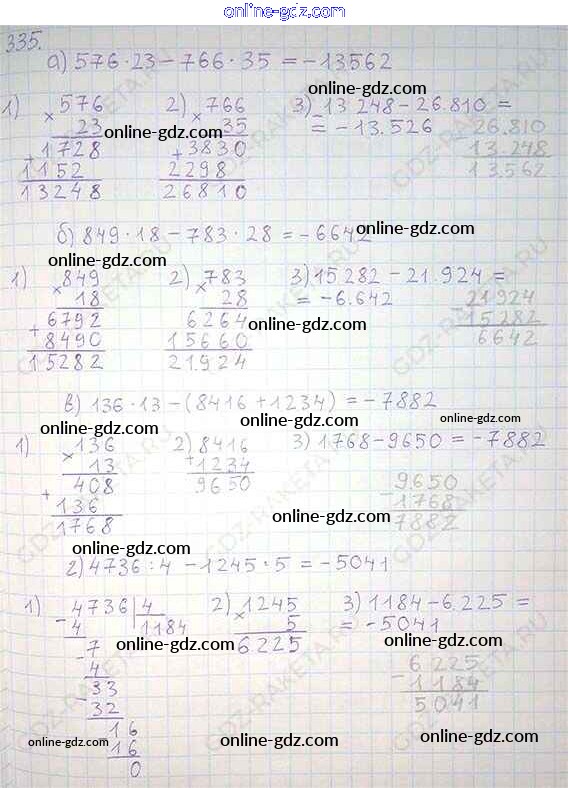 online-gdz.com
335.
а) 576·23 – 766·35 = –13562
1) × 576
23
+ 1728
1152
13248
2) × 766
35
+ 3830
2298
26810
3) 13 248 – 26.810 =
= –13.526
– 26.810
13.248
13.562
online-gdz.com
online-gdz.com
online-gdz.com
б) 849·18 – 783·28 = –6642
online-gdz.com
online-gdz.com
1) × 849
18
+ 6792
8490
15282
2) × 783
28
6264
15660
21.924
3) 15 282 – 21.924 =
= –6.642
– 21.924
15.282
6642
online-gdz.com
online-gdz.com
online-gdz.com
в) 136·13 – (8416 + 1234) = –7882
online-gdz.com
online-gdz.com
1) × 136
13
+ 408
136
1768
2) 8416
+ 1234
9650
3) 1768 – 9650 = –7882
– 9650
1768
7882
online-gdz.com
online-gdz.com
г) 4736 : 4 – 1245·5 = –5041
online-gdz.com
1) – 4736 | 4
4 1184
7
– 4
33
– 32
– 16
16
0
2) × 1245
5
6225
3) 1184 – 6.225 =
= –5041
– 6225
1184
5041
online-gdz.com
online-gdz.com
online-gdz.com
online-gdz.com
online-gdz.com
online-gdz.com
GDZ-RAKETA.RU
GDZ-RAKETA.RU
GDZ-RAKETA.RU
GDZ-RAKETA.RU